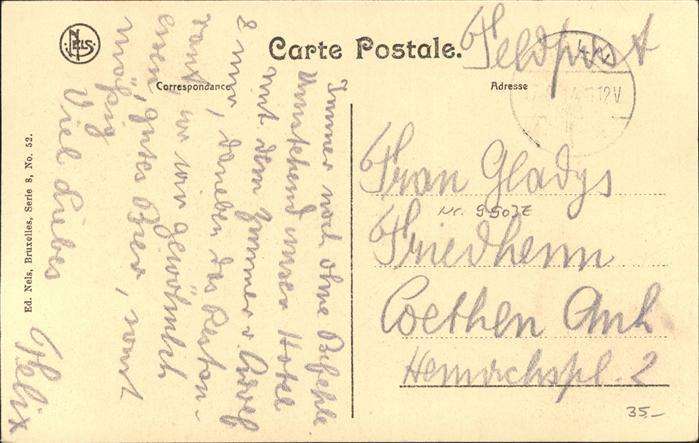 NELS
Carte Postale.
Feldpost
Correspondance
Adresse
12V
Immer noch ohne Befehle.
Umstehend unser Hotel
mit dem Zimmer v Adolf
& mir, daneben das Restau-
rant, wo wir gewöhnlich
essen, gutes Bier, sonst
mäßig
Viel Liebes
Felix
Frau Gladys
Nr. 9503Z
Friedheim
Coethen Anh
Heinrichspl. 2
35.-
Ed. Nels, Bruxelles, Serie 8, No. 52.